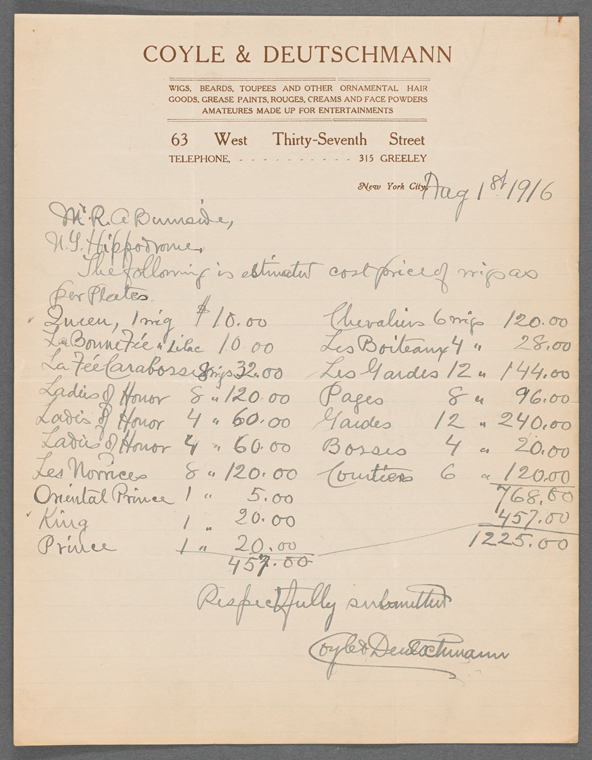 COYLE & DEUTSCHMANN
WIGS, BEARDS, TOUPEES AND OTHER ORNAMENTAL HAIR
GOODS, GREASE PAINTS, ROUGES, CREAMS AND FACE POWDERS
AMATEURES MADE UP FOR ENTERTAINMENTS
63 West Thirty-Seventh Street
TELEPHONE, - - - - - - - - - - 315 GREELEY
New York City, Aug 1st 1916
Mr. R. A Burnside,
N.Y. Hippodrome,
The following is estimated cost price of wigs as
per Plates.
Queen, 1 wig $10.00
La Bonne Fée " Lilac 10 00
La Fée Carabosse wigs 32.00
Ladies of Honor 8 " 120.00
Ladies of Honor 4 " 60.00
Ladies of Honor 4 " 60.00
Les Norrices 8 " 120.00
Oriental Prince 1 " 5.00
King 1 " 20.00
Prince 1 " 20.00
457.00
Chevaliers 6 wigs 120.00
Les Boiteaux 4 " 28.00
Les Gardes 12 " 144.00
Pages 8 " 96.00
Gardes 12 " 240.00
Bosses 4 " 20.00
Courtiers 6 " 120.00
768.00
457.00
1225.00
Respectfully submitted
Coyle & Deutschmann